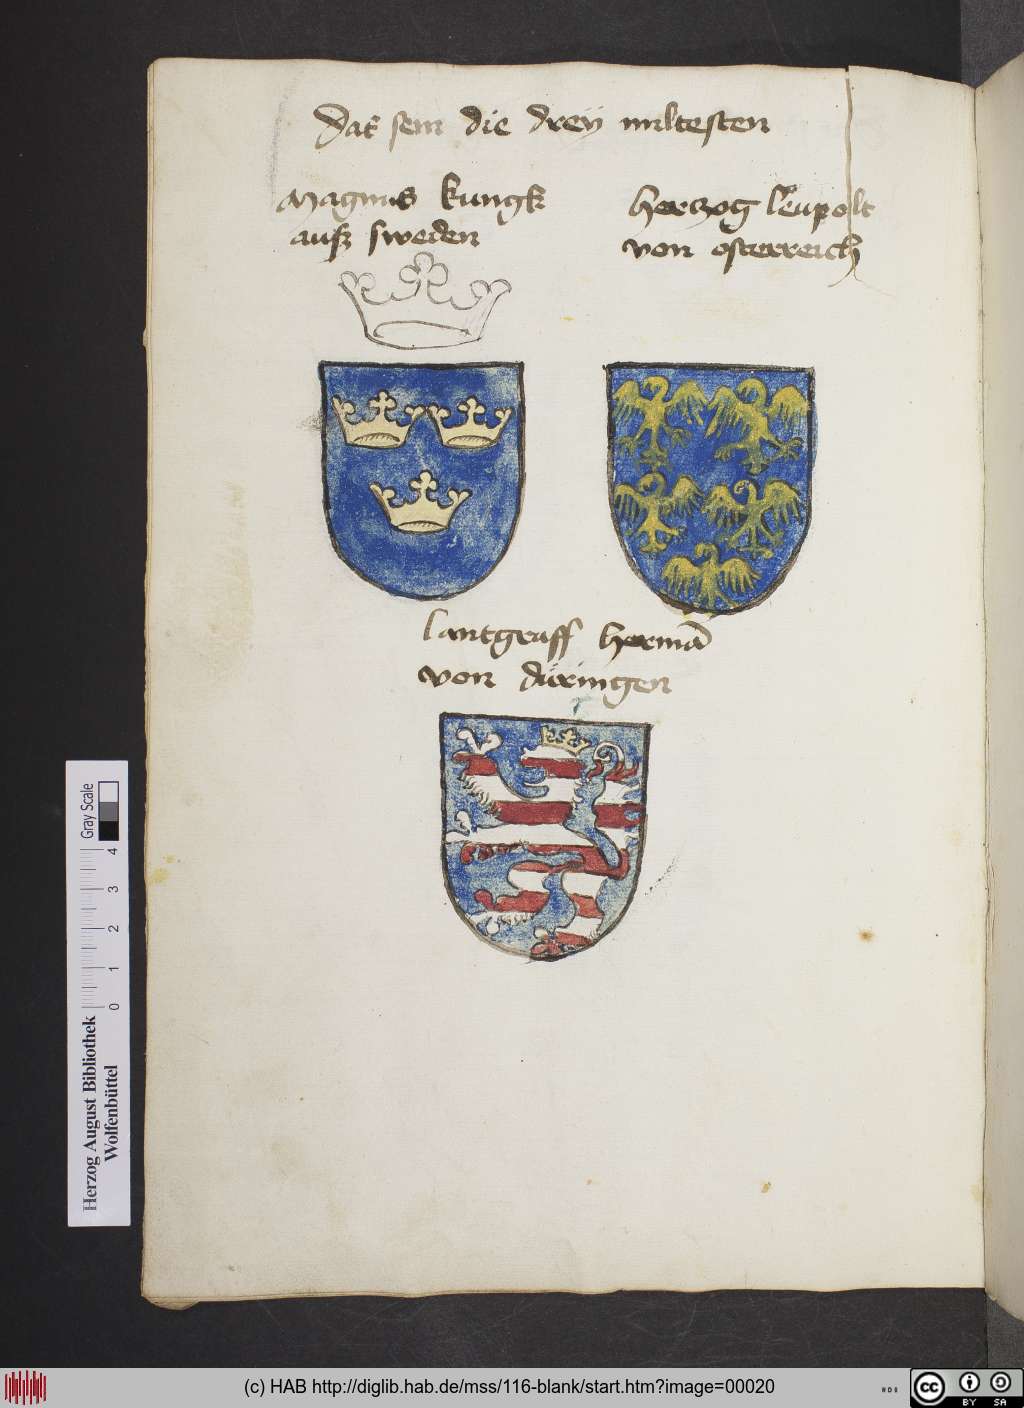 Das sein die drey miltesten
Magnus kungk
auß sweden
herczog leupolt
von osterreich
lantgraff hermā
von düringen
Gray Scale
0 1 2 3 4
Herzog August Bibliothek
Wolfenbüttel
(c) HAB http://diglib.hab.de/mss/116-blank/start.htm?image=00020
cc BY SA